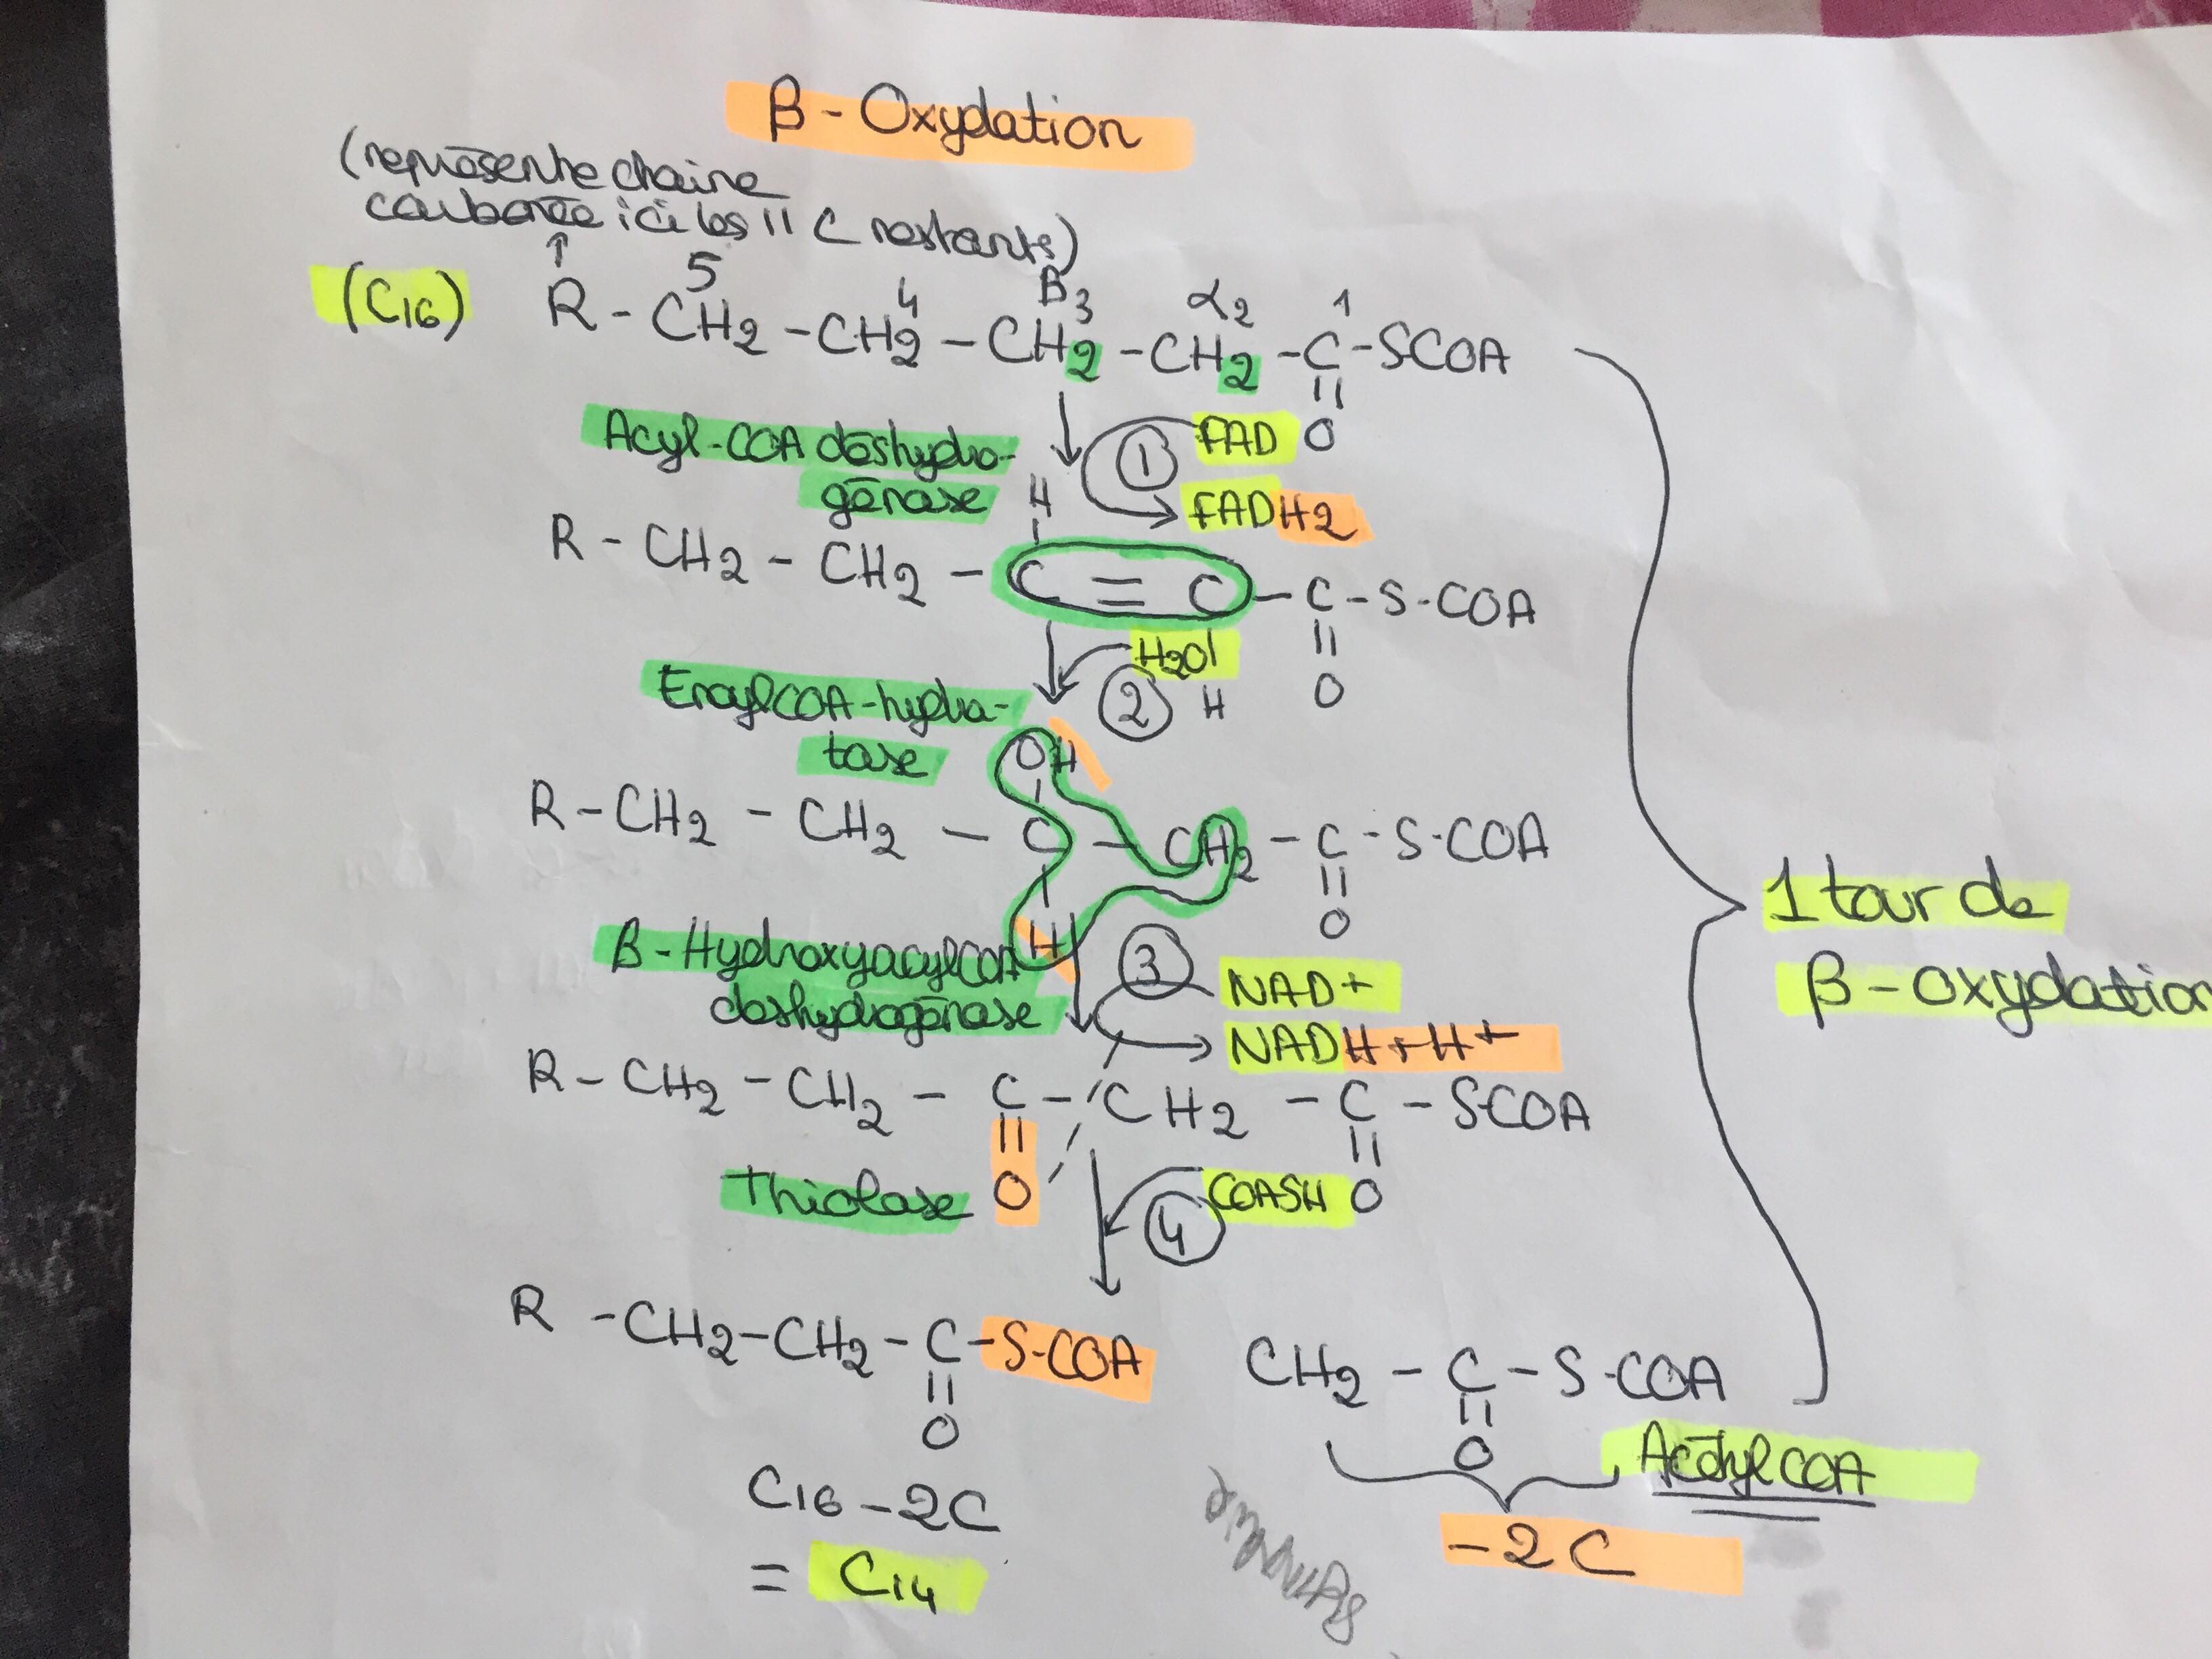 β - Oxydation
(représente chaine
carbonée ici les 11 C restants)
5 4 B3 α2 1
(C16) R - CH2 - CH2 - CH2 - CH2 - C - SCOA
||
O
Acyl-COA déshydro-
génase
1
FAD
FADH2
H
R - CH2 - CH2 - C = C - C - S - COA
||
O
H
EnoylCOA-hydra-
tase
H2O
2
OH
R - CH2 - CH2 - C - CH2 - C - S-COA
||
O
H
β - HydroxyacylCOA
deshydrogénase
3
NAD+
NADH+H+
R - CH2 - CH2 - C - CH2 - C - SCOA
|| ||
O O
Thiolase
4
COASH
R - CH2 - CH2 - C - S-COA
||
O
CH2 - C - S-COA
||
O
AcétylCOA
C16 - 2C
= C14
- 2 C
1 tour de
β - oxydation